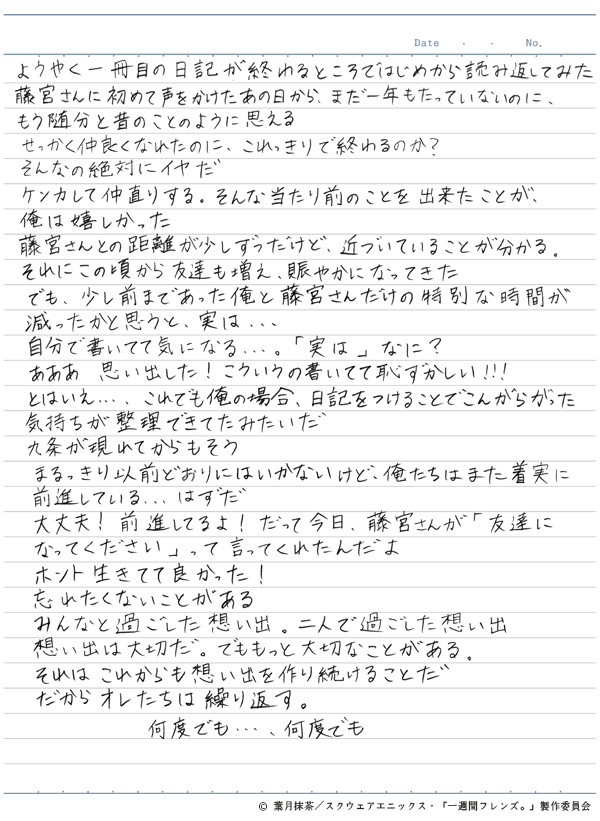 Date ・ ・ No.
ようやく一冊目の日記が終わるところではじめから読み返してみた
藤宮さんに初めて声をかけたあの日から、まだ一年もたっていないのに、
もう随分と昔のことのように思える
せっかく仲良くなれたのに、これっきりで終わるのか?
そんなの絶対にイヤだ
ケンカして仲直りする。そんな当たり前のことを出来たことが、
俺は嬉しかった
藤宮さんとの距離が少しずつだけど、近づいていることが分かる。
それにこの頃から友達も増え、賑やかになってきた
でも、少し前まであった俺と藤宮さんだけの特別な時間が
減ったかと思うと、実は・・・
自分で書いてて気になる…。「実は」なに?
あああ 思い出した!こういうの書いてて恥ずかしい!!!
とはいえ…、これでも俺の場合、日記をつけることでこんがらがった
気持ちが整理できてたみたいだ
九条が現れてからもそう
まるっきり以前どおりにはいかないけど、俺たちはまた着実に
前進している...はずだ
大丈夫!前進してるよ!だって今日、藤宮さんが「友達に
なってください」って言ってくれたんだよ
ホント生きてて良かった!
忘れたくないことがある
みんなと過ごした想い出。二人で過ごした想い出
想い出は大切だ。でももっと大切なことがある。
それはこれからも想い出を作り続けることだ
だからオレたちは繰り返す。
何度でも…、何度でも
© 葉月抹茶/スクウェアエニックス・「一週間フレンズ。」製作委員会